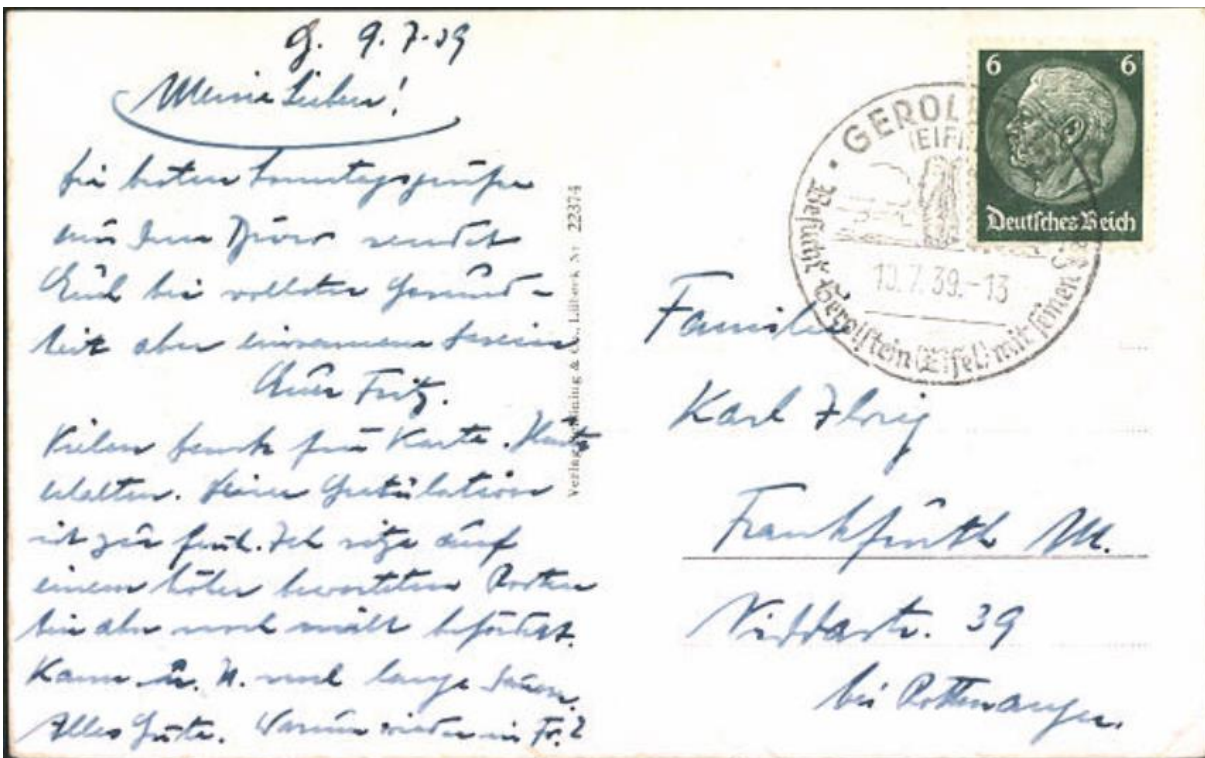 G. 9.7.39
Meine Lieben!
Die besten Sonntagsgrüße
aus dem Büro sendet
Euch bei vollster Gesund-
heit aber einsamem Dasein
Euer Fritz.
Vielen Dank für Karte. Heute
erhalten. Deine Gratulation
ist zu früh. Ich sitze auf
einem höher bewerteten Posten
bin aber noch nicht befördert.
Kann u. U. noch lange dauern.
Alles Gute. Warum wieder in Fr.?
Verlag &  Co., Lübeck Nr. 22374
6 6
Deutsches Reich
GEROL
(EIF
10.7.39.-13
Besucht Gerolstein (Eifel) mit seinen
Familie
Karl
Frankfurth M.
Niddastr. 39
bei